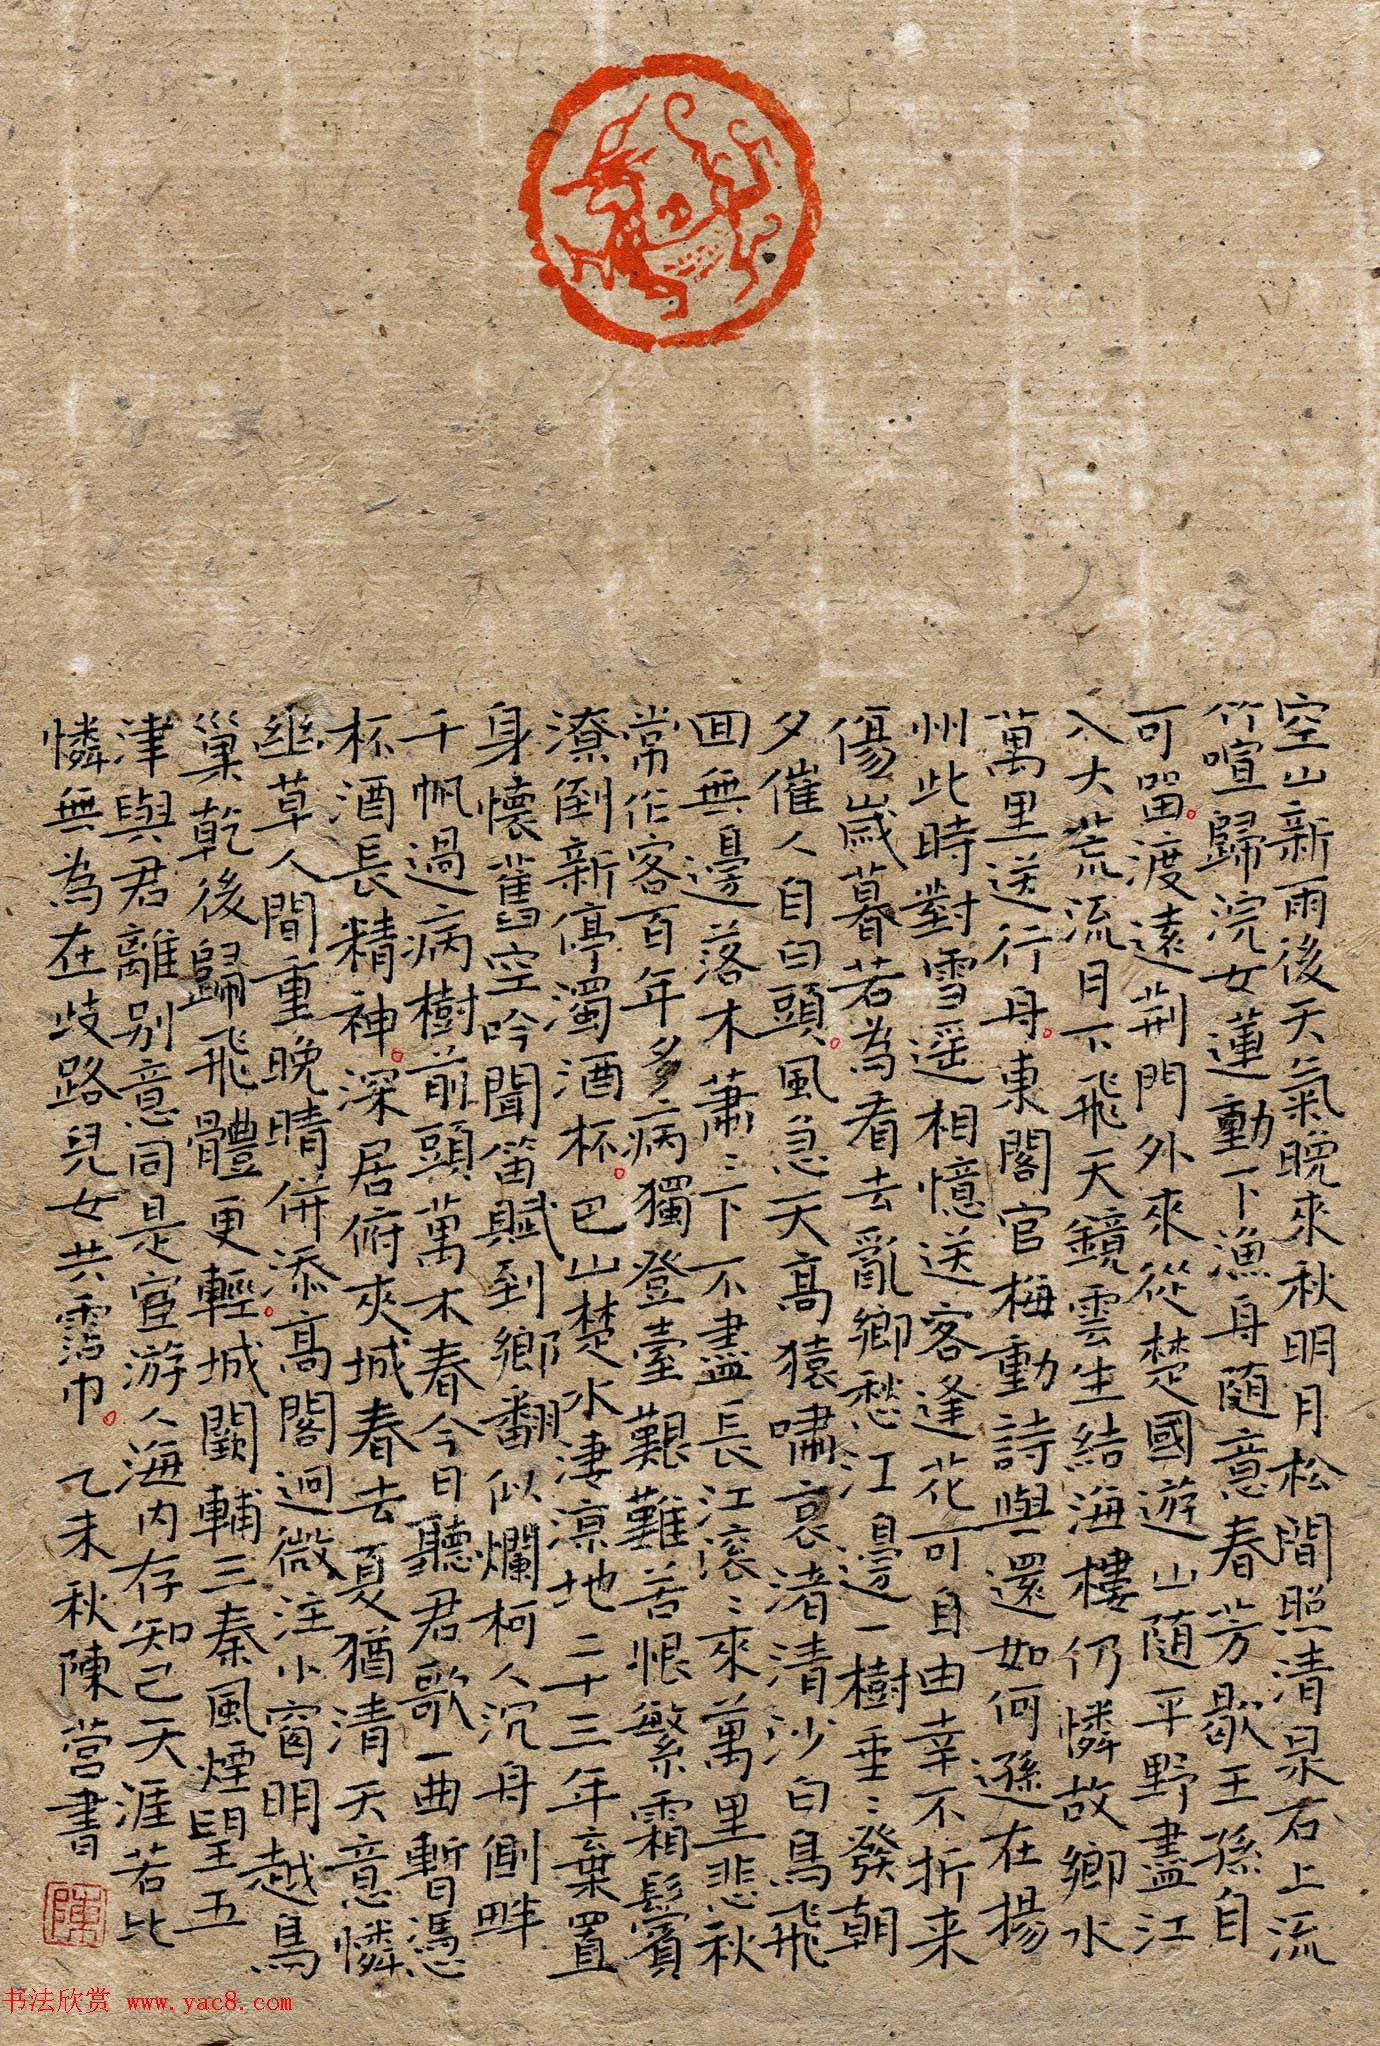 空山新雨後天氣晚來秋明月松間照清泉石上流
竹喧歸浣女蓮動下漁舟隨意春芳歇王孫自
可留渡遠荊門外來從楚國遊山隨平野盡江
入大荒流月下飛天鏡雲生結海樓仍憐故鄉水
萬里送行舟東閣官梅動詩與還如何遜在揚
州此時對雪遥相憶送客逢花可自由幸不折来
傷歲暮若為看去亂鄉愁江邊一樹垂〻發朝
夕催人自白頭風急天高猿嘯哀渚清沙白鳥飛
回無邊落木蕭〻下不盡長江滾〻來萬里悲秋
常作客百年多病獨登臺艱難苦恨繁霜鬢
潦倒新停濁酒杯巴山楚水淒涼地二十三年棄置
身懷舊空吟聞笛賦到鄉翻似爛柯人沉舟側畔
千帆過病樹前頭萬木春今日聽君歌一曲暫憑
杯酒長精神深居俯夾城春去夏猶清天意憐
幽草人間重晚晴併添高閣迥微注小窗明越鳥
巢乾後歸飛體更輕城闕輔三秦風煙望五
津與君離別意同是宦游人海內存知己天涯若比
憐無為在歧路兒女共霑巾 乙未秋陳營書
陳
书法欣赏 www.yac8.com